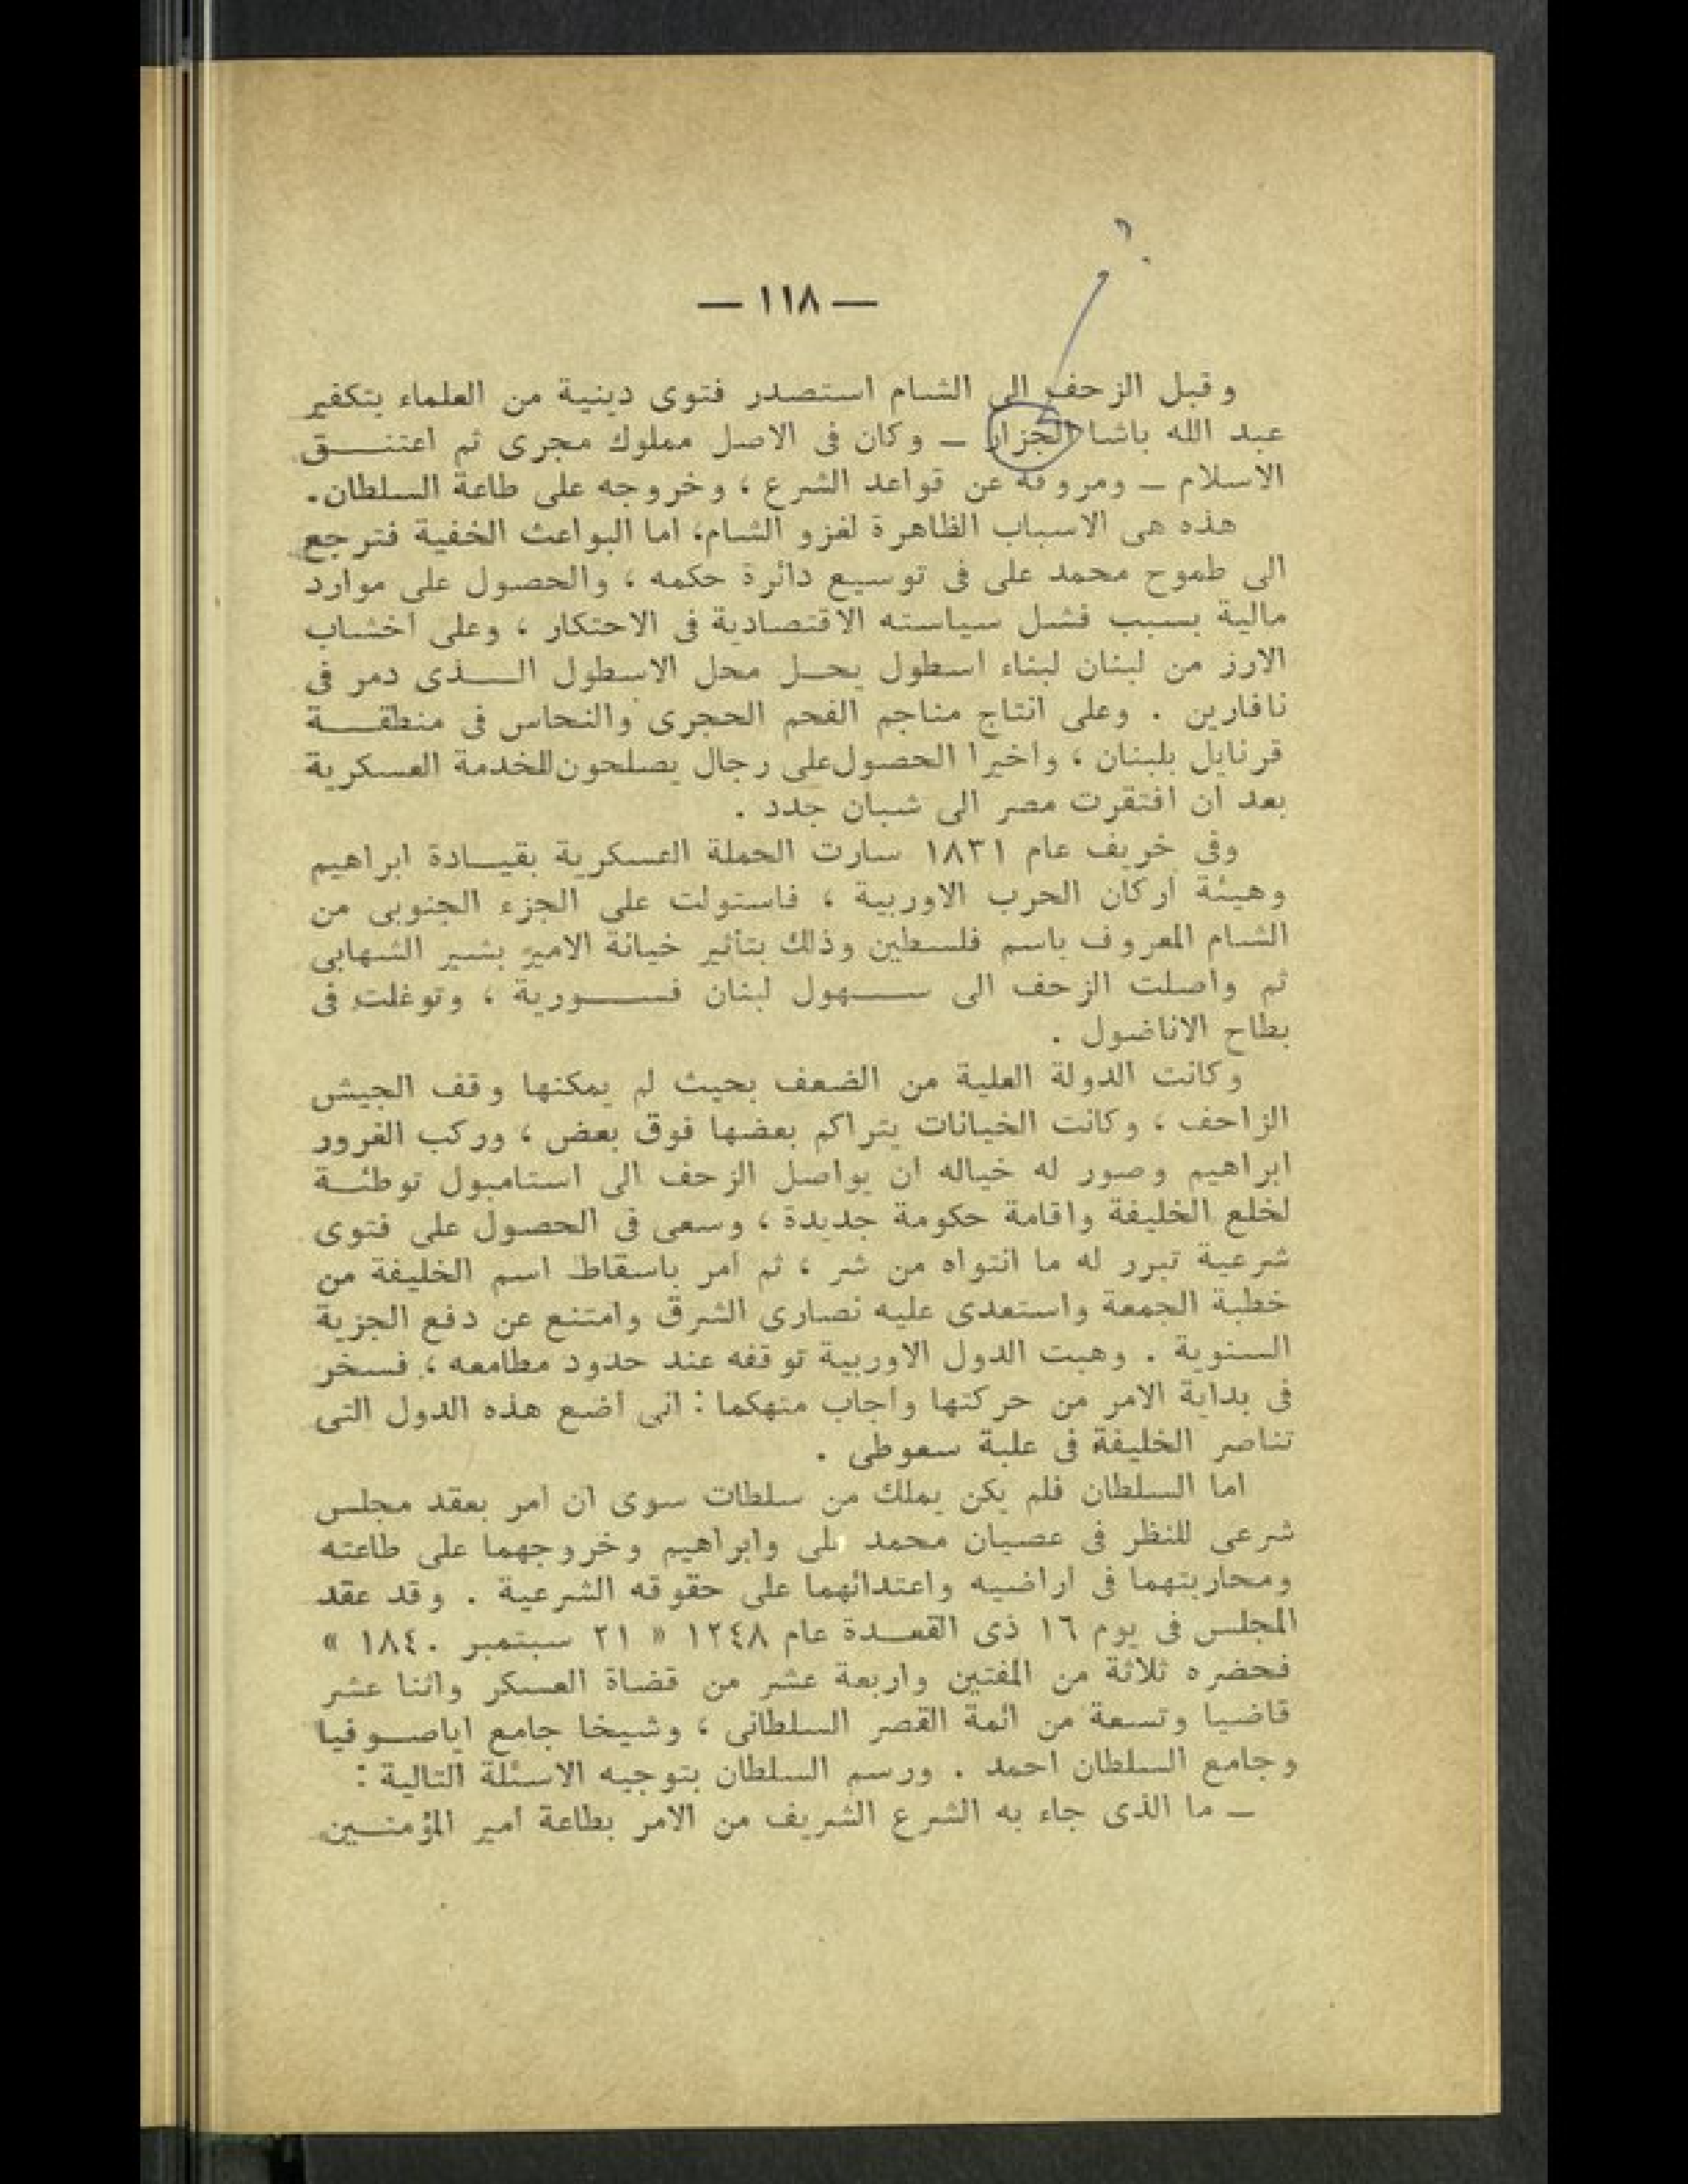 — ١١٨ —
وقبل الزحف الى الشام استصدر فتوى دينية من العلماء بتكفير
عبد الله باشا الجزار — وكان فى الاصل مملوك مجرى ثم اعتنق
الاسلام — ومروقه عن قواعد الشرع ، وخروجه على طاعة السلطان.
هذه هى الاسباب الظاهرة لغزو الشام، اما البواعث الخفية فترجع
الى طموح محمد على فى توسيع دائرة حكمه ، والحصول على موارد
مالية بسبب فشل سياسته الاقتصادية فى الاحتكار ، وعلى اخشاب
الارز من لبنان لبناء اسطول يحل محل الاسطول الذى دمر فى
نافارين . وعلى انتاج مناجم الفحم الحجرى والنحاس فى منطقة
قرنايل بلبنان ، واخيرا الحصول على رجال يصلحون للخدمة العسكرية
بعد ان افتقرت مصر الى شبان جدد .
وفى خريف عام ١٨٣١ سارت الحملة العسكرية بقيادة ابراهيم
وهيئة اركان الحرب الاوربية ، فاستولت على الجزء الجنوبى من
الشام المعروف باسم فلسطين وذلك بتأثير خيانة الامير بشير الشهابى
ثم واصلت الزحف الى سهول لبنان فسورية ، وتوغلت فى
بطاح الاناضول .
وكانت الدولة العلية من الضعف بحيث لم يمكنها وقف الجيش
الزاحف ، وكانت الخيانات يتراكم بعضها فوق بعض ، وركب الغرور
ابراهيم وصور له خياله ان يواصل الزحف الى استامبول توطئة
لخلع الخليفة واقامة حكومة جديدة ، وسعى فى الحصول على فتوى
شرعية تبرر له ما انتواه من شر ، ثم امر باسقاط اسم الخليفة من
خطبة الجمعة واستعدى عليه نصارى الشرق وامتنع عن دفع الجزية
السنوية . وهبت الدول الاوربية توقفه عند حدود مطامعه ، فسخر
فى بداية الامر من حركتها واجاب متهكما : انى اضع هذه الدول التى
تناصر الخليفة فى علبة سعوطى .
اما السلطان فلم يكن يملك من سلطات سوى ان امر بعقد مجلس
شرعى للنظر فى عصيان محمد لى وابراهيم وخروجهما على طاعته
ومحاربتهما فى اراضيه واعتدائهما على حقوقه الشرعية . وقد عقد
المجلس فى يوم ١٦ ذى القعدة عام ١٢٤٨ « ٢١ سبتمبر ١٨٤٠ »
فحضره ثلاثة من المفتين واربعة عشر من قضاة العسكر واثنا عشر
قاضيا وتسعة من ائمة القصر السلطانى ، وشيخا جامع اياصوفيا
وجامع السلطان احمد . ورسم السلطان بتوجيه الاسئلة التالية :
— ما الذى جاء به الشرع الشريف من الامر بطاعة امير المؤمنين